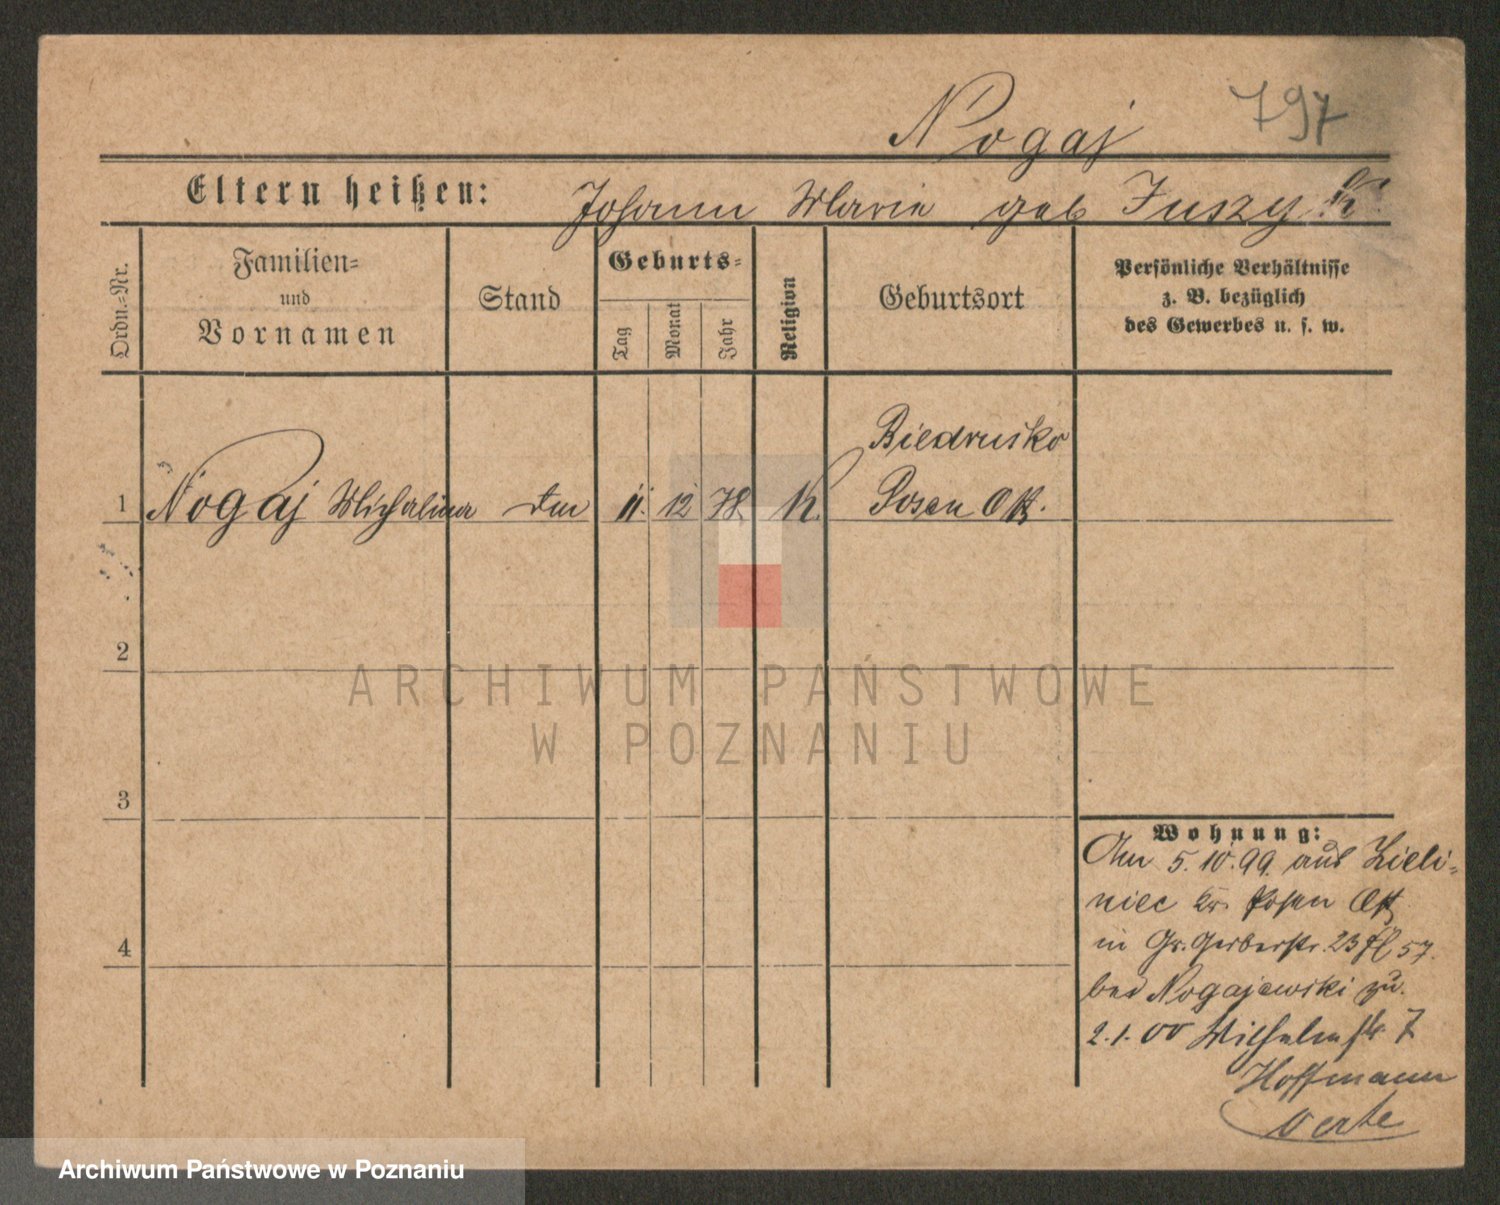 Nogaj 797
Eltern heißen: Johann Marie geb Juszyk.
Ordn.=Nr.
Familien=
und
Vornamen
Stand
Geburts=
Tag
Monat
Jahr
Religion
Geburtsort
Persönliche Verhältnisse
z. B. bezüglich
des Gewerbes u. s. w.
Biedrusko
1 Nogaj Michalina 11. 12. 78. K. Posen Ost.
2
3
4
Wohnung:
Am 5.10.99. aus Zieli=
niec Kr. Posen Ost
in Gr. Gerberstr. 23 57.
bei Nogajewski zu.
2.1.00 Wilhelmstr 7
Hoffmann
ARCHIWUM PAŃSTWOWE
W POZNANIU
Archiwum Państwowe w Poznaniu